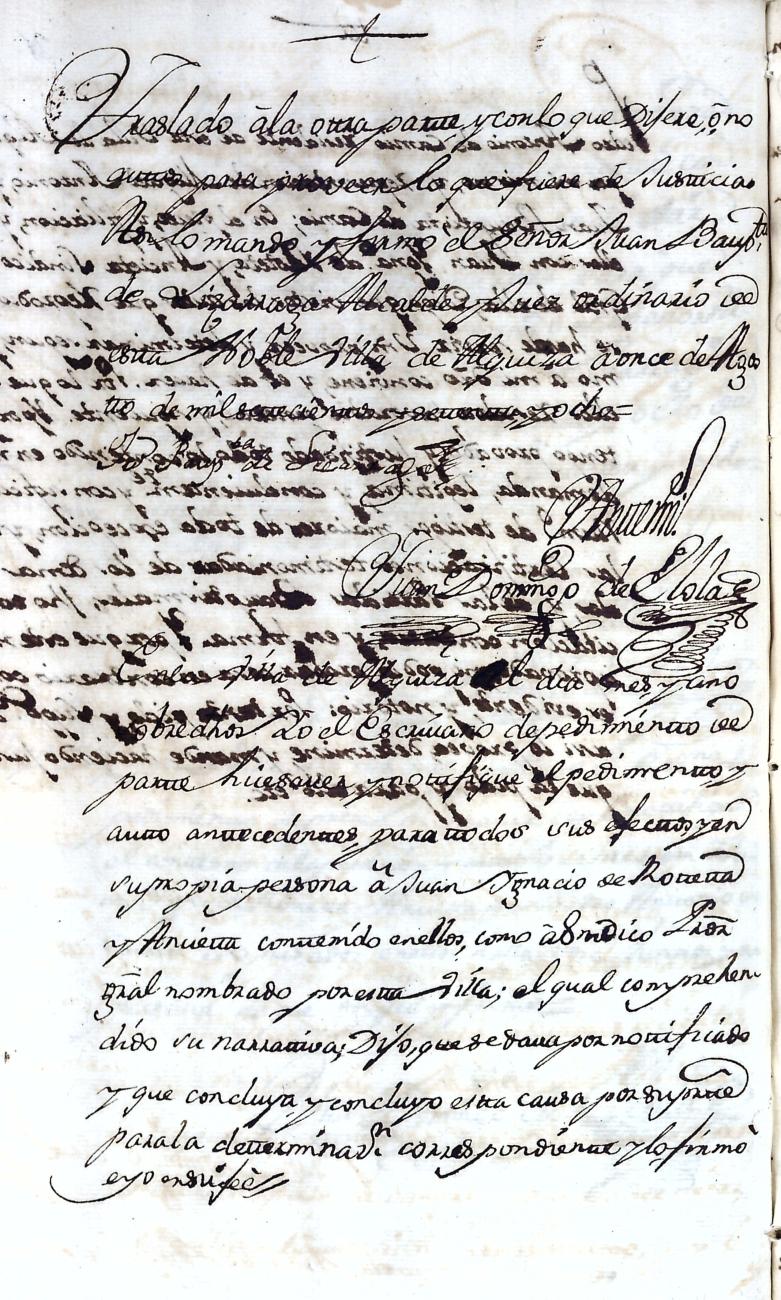 Traslado â la otra parte y con lo que Dijere, ô no
autos para proveer lo que fuere de Justicia.
Assi lo mando y firmo el Señor Juan Baupta
de Lizarraga Alcalde y Juez ordinario de
esta Noble Villa de Alquiza a once de Agos
to de mil setecientos y setenta, y ocho =
Jn Baupta de Lizarraga
Antemi
Juan Domingo de Elola
En la Villa de Alquiza el dia mes y año
sobredhos Yo el Escrivano de pedimento de
parte hise saver y notifique el pedimento y
auto antecedentes, para todos sus efectos y en
su propia persona â Juan Ygnacio de Rotetta
y Ancieta contenido en ellos, como â Sindico Pror
gral nombrado por esta Villa; el qual comprehen-
dido su narrativa; Dijo, que se dava por notificado
y que concluya, y concluyo esta causa por su parte
para la determinazn correspondiente y lo firmò
e yo en su feè